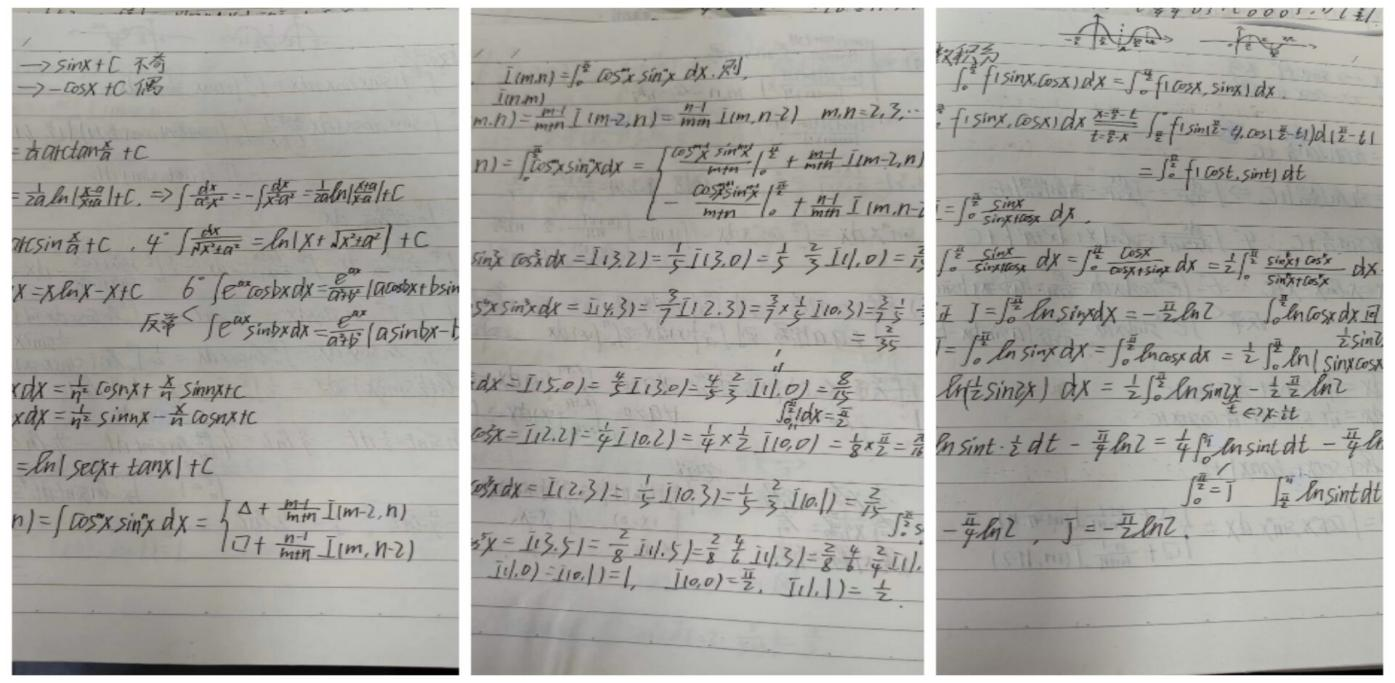 → sinx+C 不奇
→ -cosx+C 偶
= 1/a arctan x/a + C
= 1/2a ln|x-a/x+a|+C, ⇒ ∫ dx/a²-x² = -∫ dx/x²-a² = 1/2a ln|x+a/x-a|+C
arcsin x/a + C, 4° ∫ dx/√x²±a² = ln|x+√x²±a²|+C
x = xlnx-x+C 6° ∫e^ax cosbxdx = e^ax/a²+b² (acosbx+bsin
反常< ∫e^ax sinbxdx = e^ax/a²+b² (asinbx-b
xdx = 1/n² cosnx + x/n sinnx+C
xdx = 1/n² sinnx - x/n cosnx+C
= ln|secx+tanx|+C
n) = ∫cos^m x sin^n x dx = { Δ + m-1/m+n I(m-2,n)
□ + n-1/m+n I(m,n-2)
I(m,n) = ∫₀^π/2 cos^m x sin^n x dx. 则
I(n,m)
m,n) = m-1/m+n I(m-2,n) = n-1/m+n I(m,n-2) m,n=2,3,…
n) = ∫₀^π/2 cos^m x sin^n x dx = { cos^m-1 x sin^n+1 x/m+n |₀^π/2 + m-1/m+n I(m-2,n)
- cos^m+1 x sin^n-1 x/m+n |₀^π/2 + n-1/m+n I(m,n-2
sin²x cos³x dx = I(3,2) = 1/5 I(3,0) = 1/5 2/3 I(1,0) = 2/15
s⁴x sin³x dx = I(4,3) = 3/7 I(2,3) = 3/7 × 1/5 I(0,3) = 3/7 1/5
= 2/35
dx = I(5,0) = 4/5 I(3,0) = 4/5 2/3 I(1,0) = 8/15
∫₀^π/2 1dx = π/2
cos²x = I(2,2) = 1/4 I(0,2) = 1/4 × 1/2 I(0,0) = 1/8 × π/2 = π/16
cos²x dx = I(2,3) = 1/5 I(0,3) = 1/5 2/3 I(0,1) = 2/15
∫₀^π/2 s
x = I(3,5) = 2/8 I(1,5) = 2/8 4/6 I(1,3) = 2/8 4/6 2/4 I(1,
I(1,0) = I(0,1) = 1, I(0,0) = π/2, I(1,1) = 1/2.
积分
∫₀^π/2 f(sinx,cosx)dx = ∫₀^π/2 f(cosx,sinx)dx.
f(sinx,cosx)dx x=π/2-t t=π/2-x ∫_π/2^0 f(sin(π/2-t),cos(π/2-t))d(π/2-t)
= ∫₀^π/2 f(cost,sint)dt
= ∫₀^π/2 sinx/sinx+cosx dx.
∫₀^π/2 sinx/sinx+cosx dx = ∫₀^π/2 cosx/cosx+sinx dx = 1/2 ∫₀^π/2 sinx+cosx/sinx+cosx dx
证 J = ∫₀^π/2 lnsinxdx = -π/2 ln2 ∫₀^π/2 lncosx dx 同
1/2 sin2
J = ∫₀^π/2 lnsinx dx = ∫₀^π/2 lncosx dx = 1/2 ∫₀^π/2 ln(sinxcosx
ln(1/2 sin2x) dx = 1/2 ∫₀^π/2 lnsin2x - 1/2 π/2 ln2
t ⇔ x=1/2t
lnsint·1/2 dt - π/4 ln2 = 1/4 ∫₀^π lnsint dt - π/4 ln
∫₀^π/2 = J ∫_π/2^π lnsintdt
- π/4 ln2, J = -π/2 ln2.